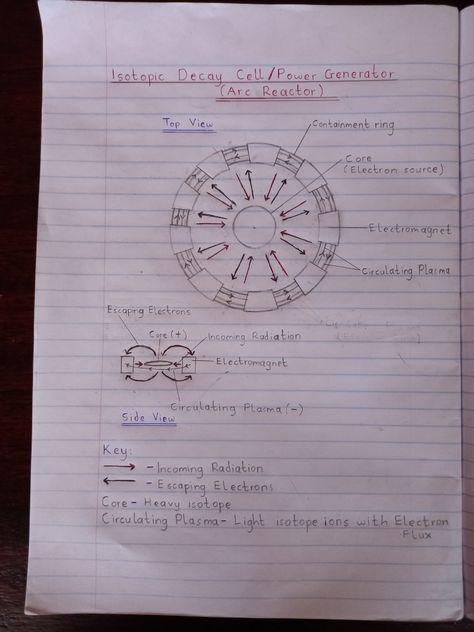 Isotopic Decay Cell/Power Generator
(Arc Reactor)
Top View
Containment ring
Core
(Electron source)
Electromagnet
Circulating Plasma
Escaping Electrons
Core (+)
Incoming Radiation
Electromagnet
Circulating Plasma (-)
Side View
Key:
- Incoming Radiation
- Escaping Electrons
Core - Heavy isotope
Circulating Plasma - Light isotope ions with Electron
Flux